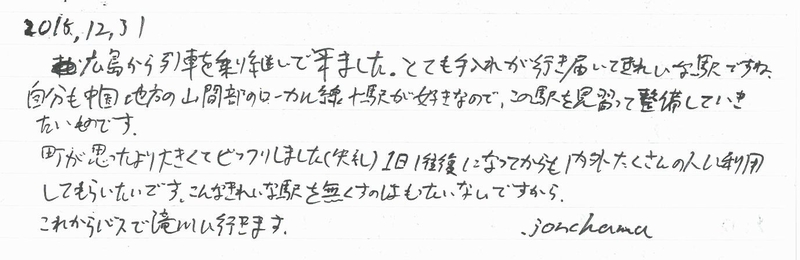 2018,12,31
広島から列車を乗り継いで来ました。とても手入れが行き届いてきれいな駅ですね。
自分も中国地方の山間部のローカル線や駅が好きなので、この駅を見習って整備していき
たいものです。
町が思ったより大きくてビックリしました(失礼) 1日1往復になってからも内外たくさんの人に利用
してもらいたいです。こんなきれいな駅を無くすのはもったいないですから。
これからバスで滝川へ行きます。